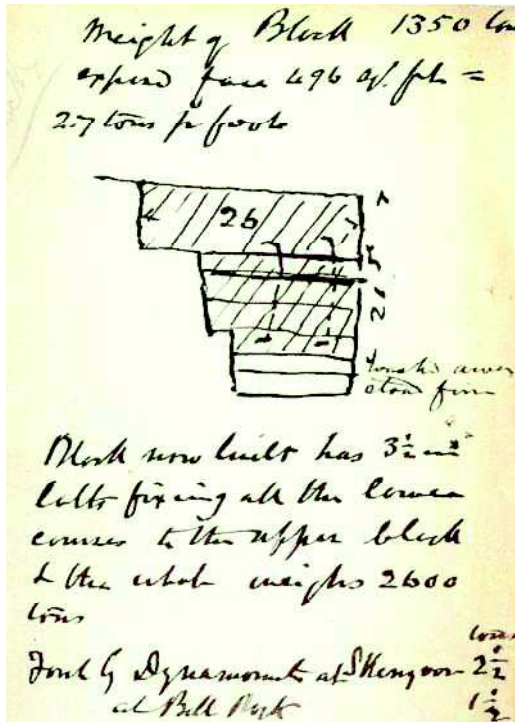 Weight of Block 1350 tons
exposed face 496 sq. feet =
2.7 tons pr foot
26
7
5
21
stood firm
Block now built has 3½ in
bolts fixing all the lower
courses to the upper block
& the whole weighs 2600
tons
tons
by Dynamometer at 2½
at Bell Rock 1½